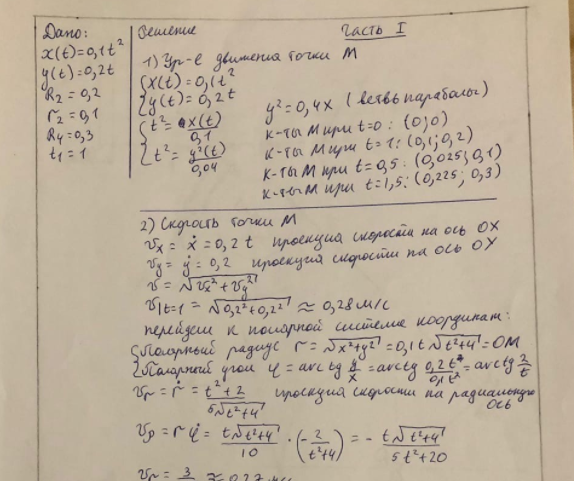 Дано:
x(t)=0,1t²
y(t)=0,2t
R₂=0,2
r₂=0,1
R₄=0,3
t₁=1
Решение
Часть I
1) Ур-е движения точки М
{x(t)=0,1t²
{y(t)=0,2t
{t²=x(t)/0,1
{t²=y²(t)/0,04
y²=0,4x (ветвь параболы)
к-ты М при t=0: (0;0)
к-ты М при t=1: (0,1;0,2)
к-ты М при t=0,5: (0,025;0,1)
к-ты М при t=1,5: (0,225;0,3)
2) Скорость точки М
vₓ=ẋ=0,2t проекция скорости на ось OX
vᵧ=ẏ=0,2 проекция скорости на ось OY
v=√(vₓ²+vᵧ²)
v|t=1=√(0,2²+0,2²)≈0,28 м/с
перейдем к полярной системе координат:
{Полярный радиус r=√(x²+y²)=0,1t√(t²+4)=OM
{Полярный угол φ=arctg y/x=arctg 0,2t/0,1t²=arctg 2/t
vᵣ=ṙ=(t²+2)/(5√(t²+4)) проекция скорости на радиальную
ось
vₚ=rφ̇=(t√(t²+4))/10·(-2/(t²+4))=-(t√(t²+4))/(5t²+20)
vᵣ=3